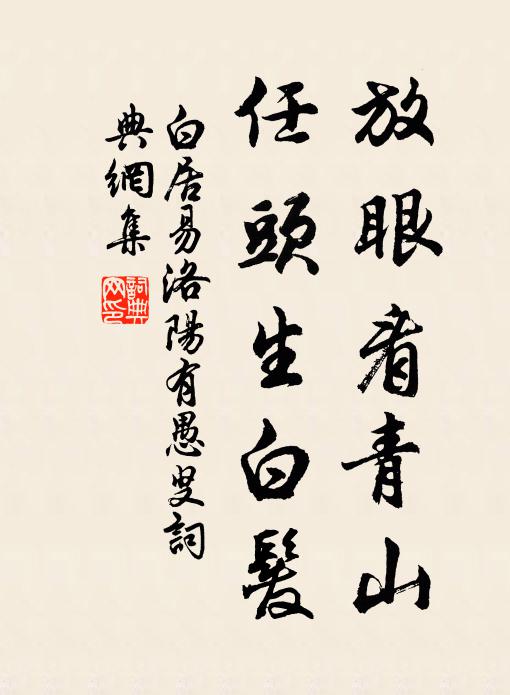 放眼看青山
任頭生白髮
白居易洛陽有愚叟詞
典網集
詞典
网印